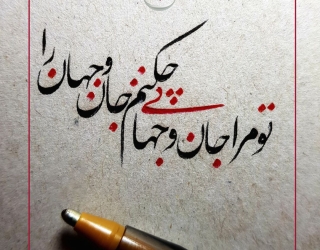 تو مرا جان و جهانی
چکنم جان و جهان را